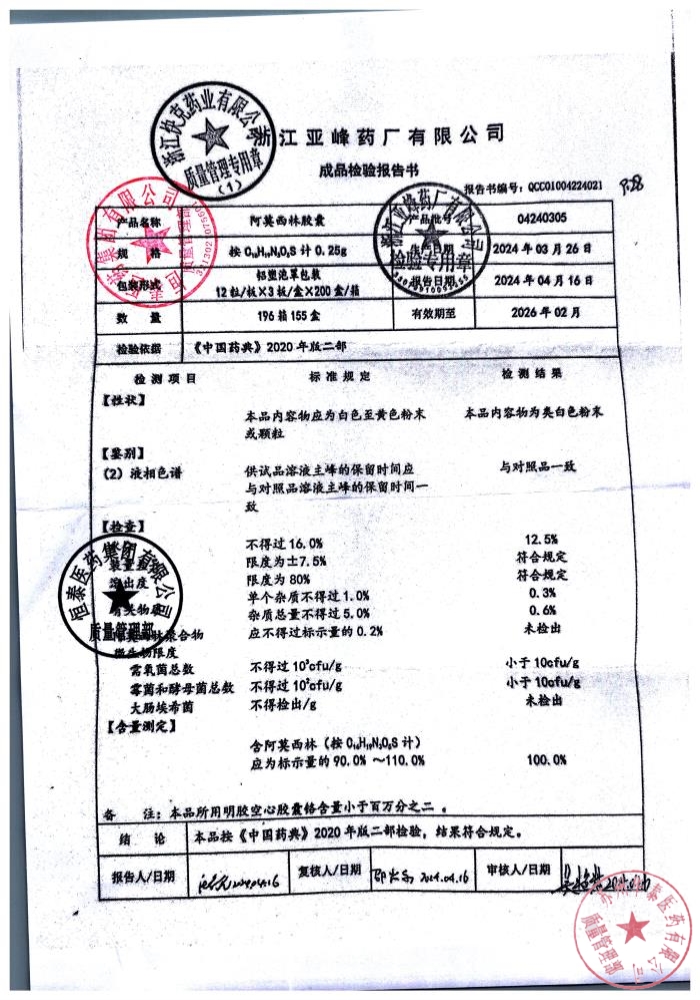 浙江亚峰药厂有限公司
成品检验报告书
报告书编号：QCC01004224021 P.28
产品名称 阿莫西林胶囊 产品批号 04240305
规 格 按 C₁₆H₁₉N₃O₅S 计 0.25g 生产日期 2024 年 03 月 26 日
包装形式 铝塑泡罩包装 报告日期 2024 年 04 月 16 日
12 粒/板×3 板/盒×200 盒/箱
数 量 196 箱 155 盒 有效期至 2026 年 02 月
检验依据 《中国药典》2020 年版二部
检测项目 标准规定 检测结果
【性状】
本品内容物应为白色至黄色粉末 本品内容物为类白色粉末
或颗粒
【鉴别】
（2）液相色谱 供试品溶液主峰的保留时间应 与对照品一致
与对照品溶液主峰的保留时间一
致
【检查】
不得过 16.0% 12.5%
装量 限度为±7.5% 符合规定
溶出度 限度为 80% 符合规定
有关物质 单个杂质不得过 1.0% 0.3%
杂质总量不得过 5.0% 0.6%
阿莫西林聚合物 应不得过标示量的 0.2% 未检出
微生物限度
需氧菌总数 不得过 10³cfu/g 小于 10cfu/g
霉菌和酵母菌总数 不得过 10²cfu/g 小于 10cfu/g
大肠埃希菌 不得检出/g 未检出
【含量测定】
含阿莫西林（按 C₁₆H₁₉N₃O₅S 计）
应为标示量的 90.0% ～110.0% 100.0%
备 注：本品所用明胶空心胶囊铬含量小于百万分之二 。
结 论 本品按《中国药典》2020 年版二部检验，结果符合规定。
报告人/日期 2024.04.16 复核人/日期 2024.04.16 审核人/日期
浙江快克药业有限公司
质量管理专用章
（1）
浙江亚峰药厂有限公司
检验专用章
恒泰医药集团有限公司
质量管理部
医药有限公司
质量管理部